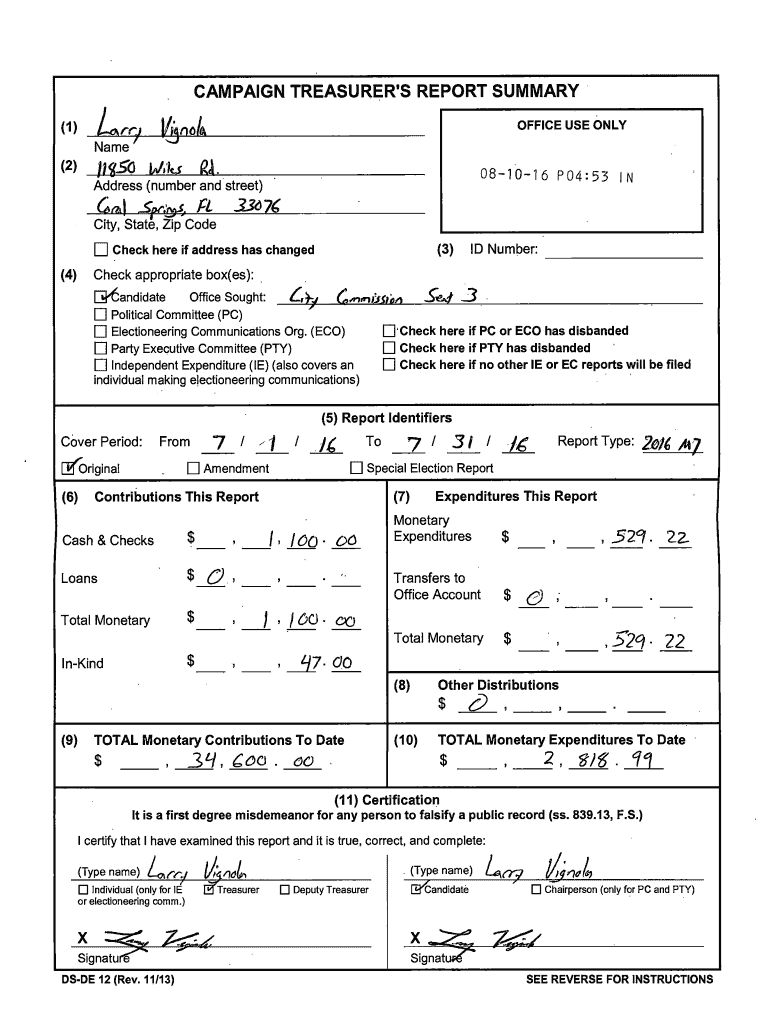 CAMPAIGN TREASURER'S REPORT SUMMARY
(1) Larry Vignola
Name
OFFICE USE ONLY
08-10-16 P04:53 IN
(2) 11850 Wiles Rd.
Address (number and street)
Coral Springs, FL 33076
City, State, Zip Code
Check here if address has changed
(3) ID Number:
(4) Check appropriate box(es):
Candidate Office Sought: City Commission Seat 3
Political Committee (PC)
Electioneering Communications Org. (ECO)
Check here if PC or ECO has disbanded
Party Executive Committee (PTY)
Check here if PTY has disbanded
Independent Expenditure (IE) (also covers an
Check here if no other IE or EC reports will be filed
individual making electioneering communications)
(5) Report Identifiers
Cover Period: From 7 / 1 / 16 To 7 / 31 / 16 Report Type: 2016 M7
Original Amendment Special Election Report
(6) Contributions This Report
Cash & Checks $ , 1, 100. 00
Loans $ 0, , .
Total Monetary $ , 1, 100. 00
In-Kind $ , , 47.00
(7) Expenditures This Report
Monetary
Expenditures $ , , 529. 22
Transfers to
Office Account $ 0, , .
Total Monetary $ , , 529. 22
(8) Other Distributions
$ 0, , .
(9) TOTAL Monetary Contributions To Date
$ , 34, 600. 00
(10) TOTAL Monetary Expenditures To Date
$ , 2, 818. 99
(11) Certification
It is a first degree misdemeanor for any person to falsify a public record (ss. 839.13, F.S.)
I certify that I have examined this report and it is true, correct, and complete:
(Type name) Larry Vignola
Individual (only for IE Treasurer Deputy Treasurer
or electioneering comm.)
X Larry Vignola
Signature
(Type name) Larry Vignola
Candidate Chairperson (only for PC and PTY)
X Larry Vignola
Signature
DS-DE 12 (Rev. 11/13)
SEE REVERSE FOR INSTRUCTIONS